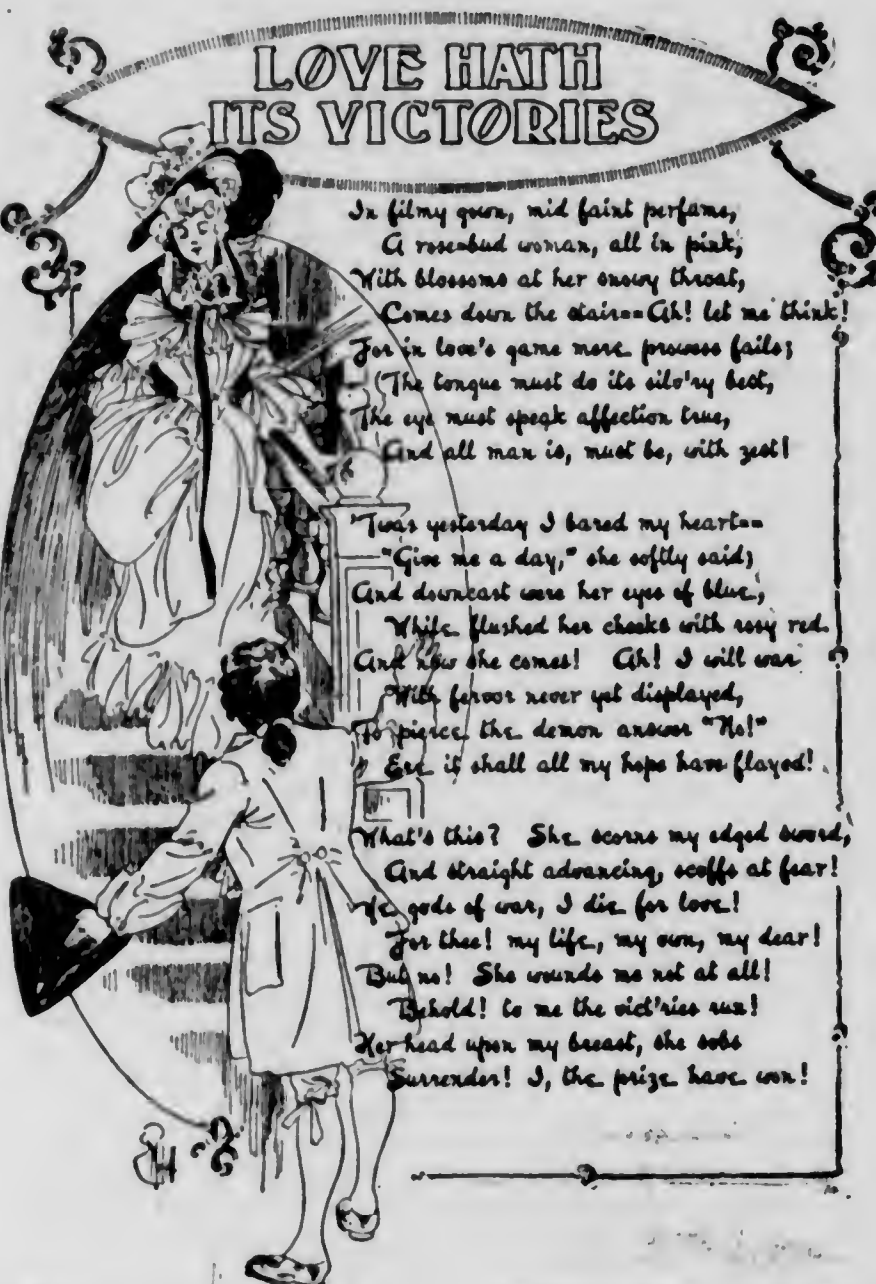 LOVE HATH
ITS VICTORIES
In filmy gown, mid faint perfume,
A rose=bud woman, all in pink,
With blossoms at her snowy throat,
Comes down the stair== Ah! let me think!
For in love's game mere prowess fails;
The tongue must do its silv'ry best,
The eye must speak affection true,
And all man is, must be, with zest!
'Twas yesterday I bared my heart==
"Give me a day," she softly said;
And downcast were her eyes of blue,
While flushed her cheeks with rosy red.
And now she comes! Ah! I will war
With fervor never yet displayed,
To pierce the demon answer "No!"
Ere it shall all my hope have flayed!
What's this? She scorns my edged sword,
And straight advancing, scoffs at fear!
Ye gods of war, I die for love!
For thee! my life, my own, my dear!
But no! She wounds me not at all!
Behold! to me the vict'ries run!
Her head upon my breast, she sobs
Surrender! I, the prize have won!